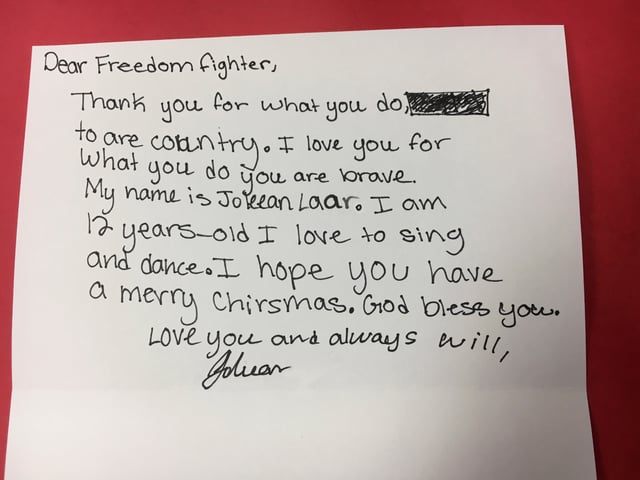 Dear Freedom fighter,
Thank you for what you do,
to are country. I love you for
what you do you are brave.
My name is Laar. I am
12 years-old I love to sing
and dance. I hope you have
a merry Chirsmas. God bless you.
Love you and always will,